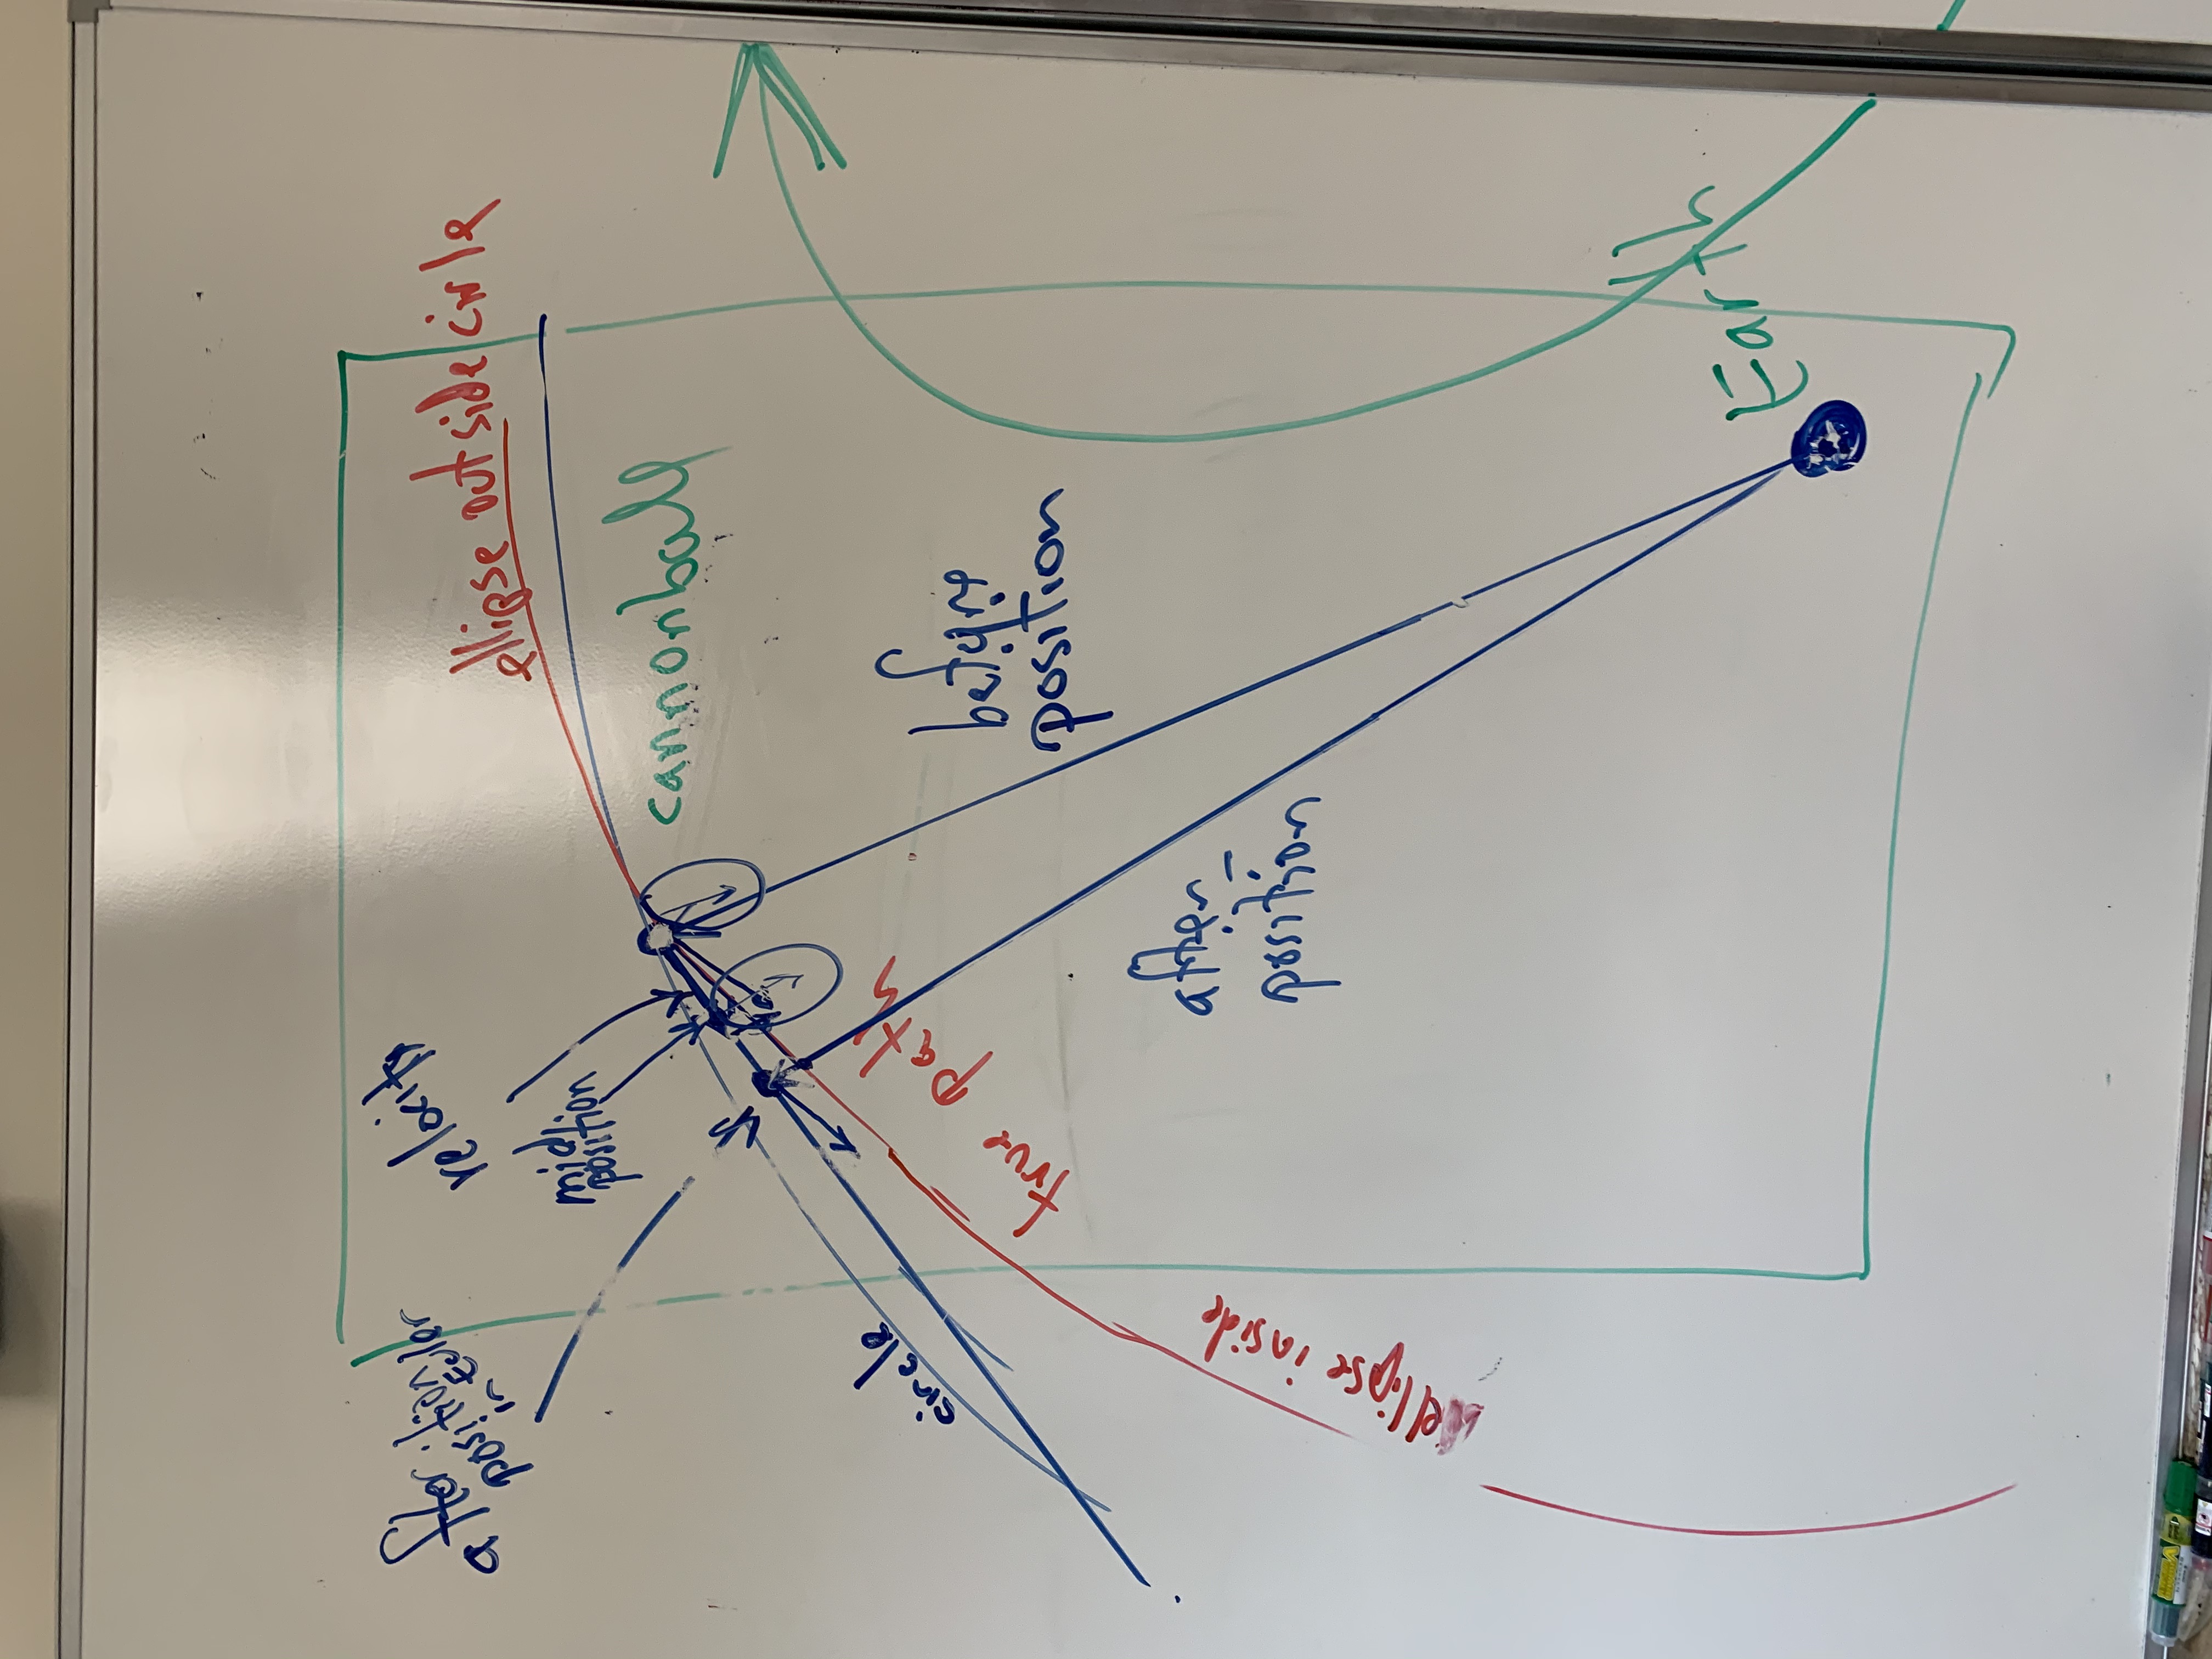 after
position
in Euler
velocity
mid
position
ellipse outside cirle
cannonball
circle
true path
before
position
after
position
ellipse inside
Earth